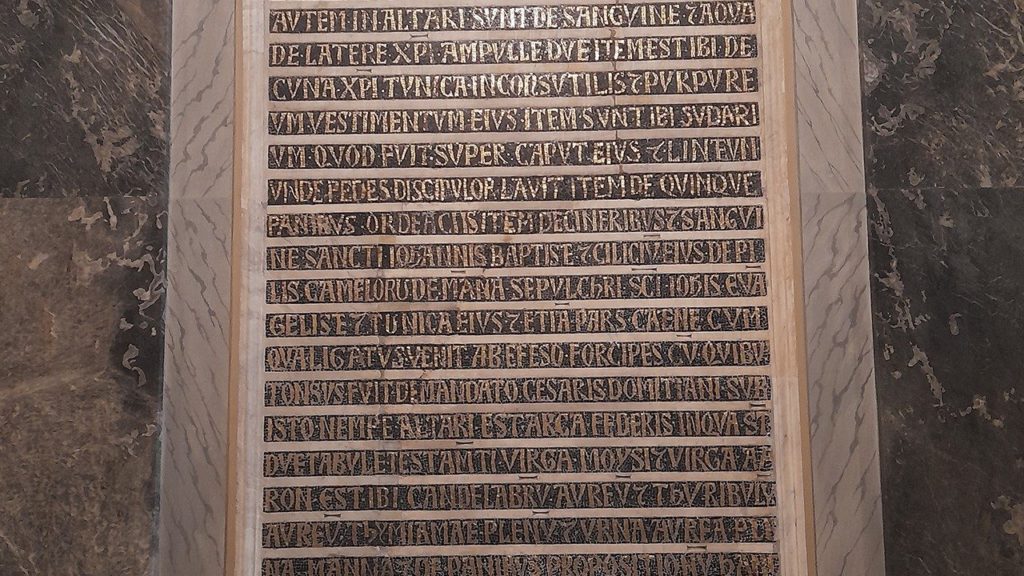 AVTEM IN ALTARI SVNT DE SANGVINE ⁊ AQVA
DE LATERE XPI·AMPVLLE DVE ITEM EST IBI DE
CVNA·XPI·TVNICA INCONSVTILIS ⁊ PVRPVRE
VM VESTIMENTVM EIVS·ITEM SVNT IBI SVDARI
VM·QVOD FVIT·SVPER·CAPVT EIVS ⁊ LINTEVM
VNDE PEDES DISCIPVLOR LAVIT ITEM DE QVINQVE
PANIBVS·ORDEACIIS ITEM DE CINERIBVS ⁊ SANGVI
NE SANCTI IOHANNIS BAPTISE ⁊ CILICIV EIVS DE PI
LIS CAMELORV DE MANA SEPVLCHRI SCI IOHIS EVA
GELISE ⁊ TVNICA EIVS ⁊ ETIA PARS CAENE CVM
QVA LIGATVS VENIT AB EFESO FORCIPES CV QVIBV
TONSVS FVIT DE MANDATO CESARIS DOMITIANI SVB
ISTO NEMPE ALTARI EST ARCA FEDERIS IN QVA ST
DVE TABVLE TESTAMTI VIRGA MOYSI ⁊ VIRGA AA
RON EST IBI CANDELABRV AVREV ⁊ THVRIBVLV
AVREV THYMIAMAE PLENV ⁊ VRNA AVREA PLE
NA MANNA ⁊ DE PANIBVS PROPOSITIONV